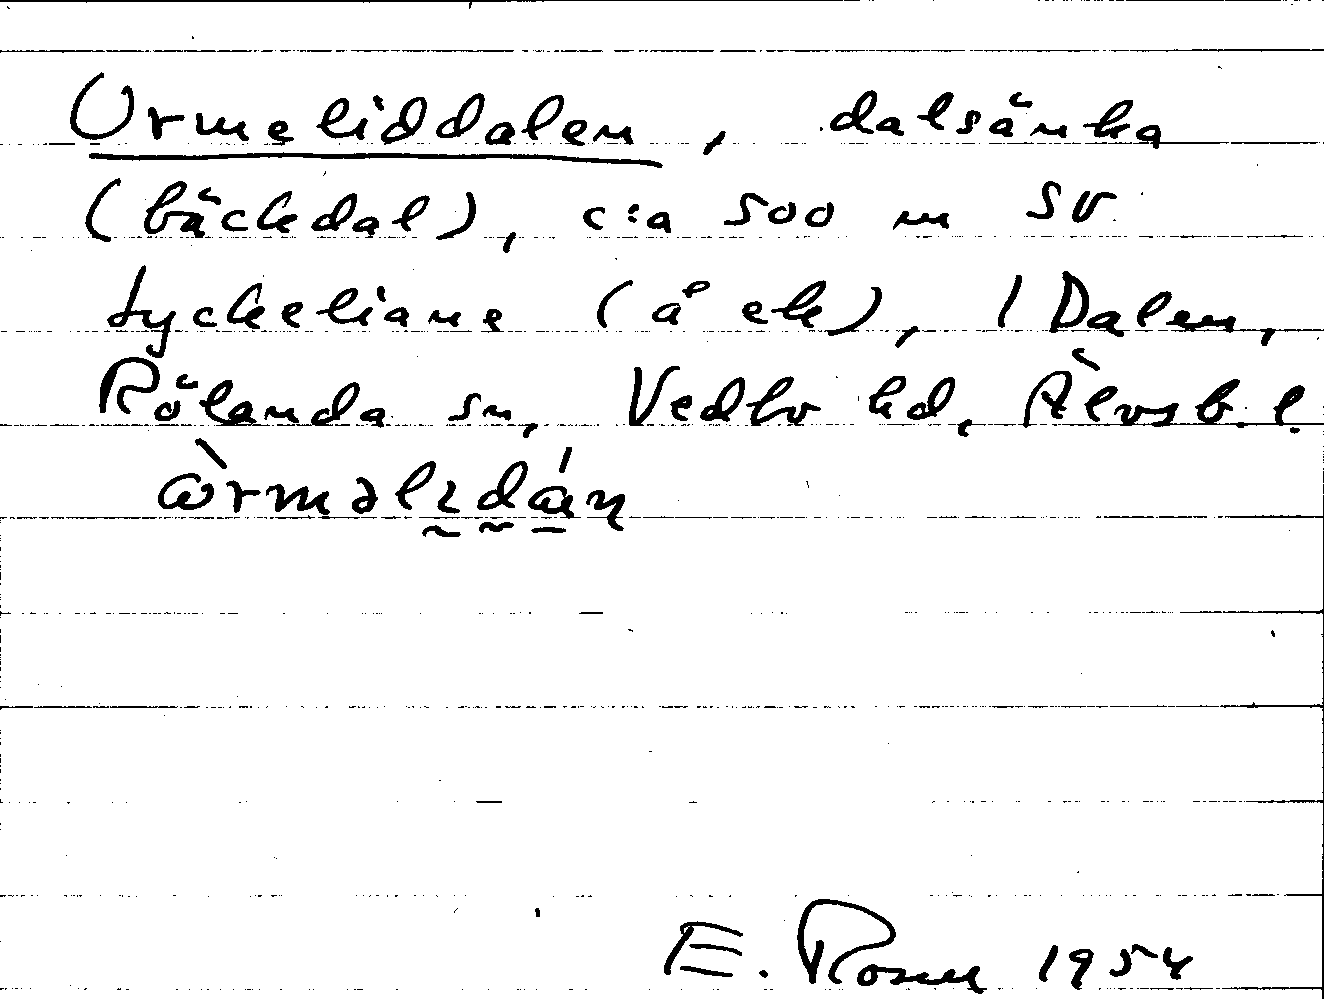 Urmeliddalen, dalsänka
(bäckdal), c:a 500 m SV
Lyckeliane (å ek), 1 Dalen,
Rölanda sn, Vedbo hd, Älvsb. l.
E. Rosen 1954